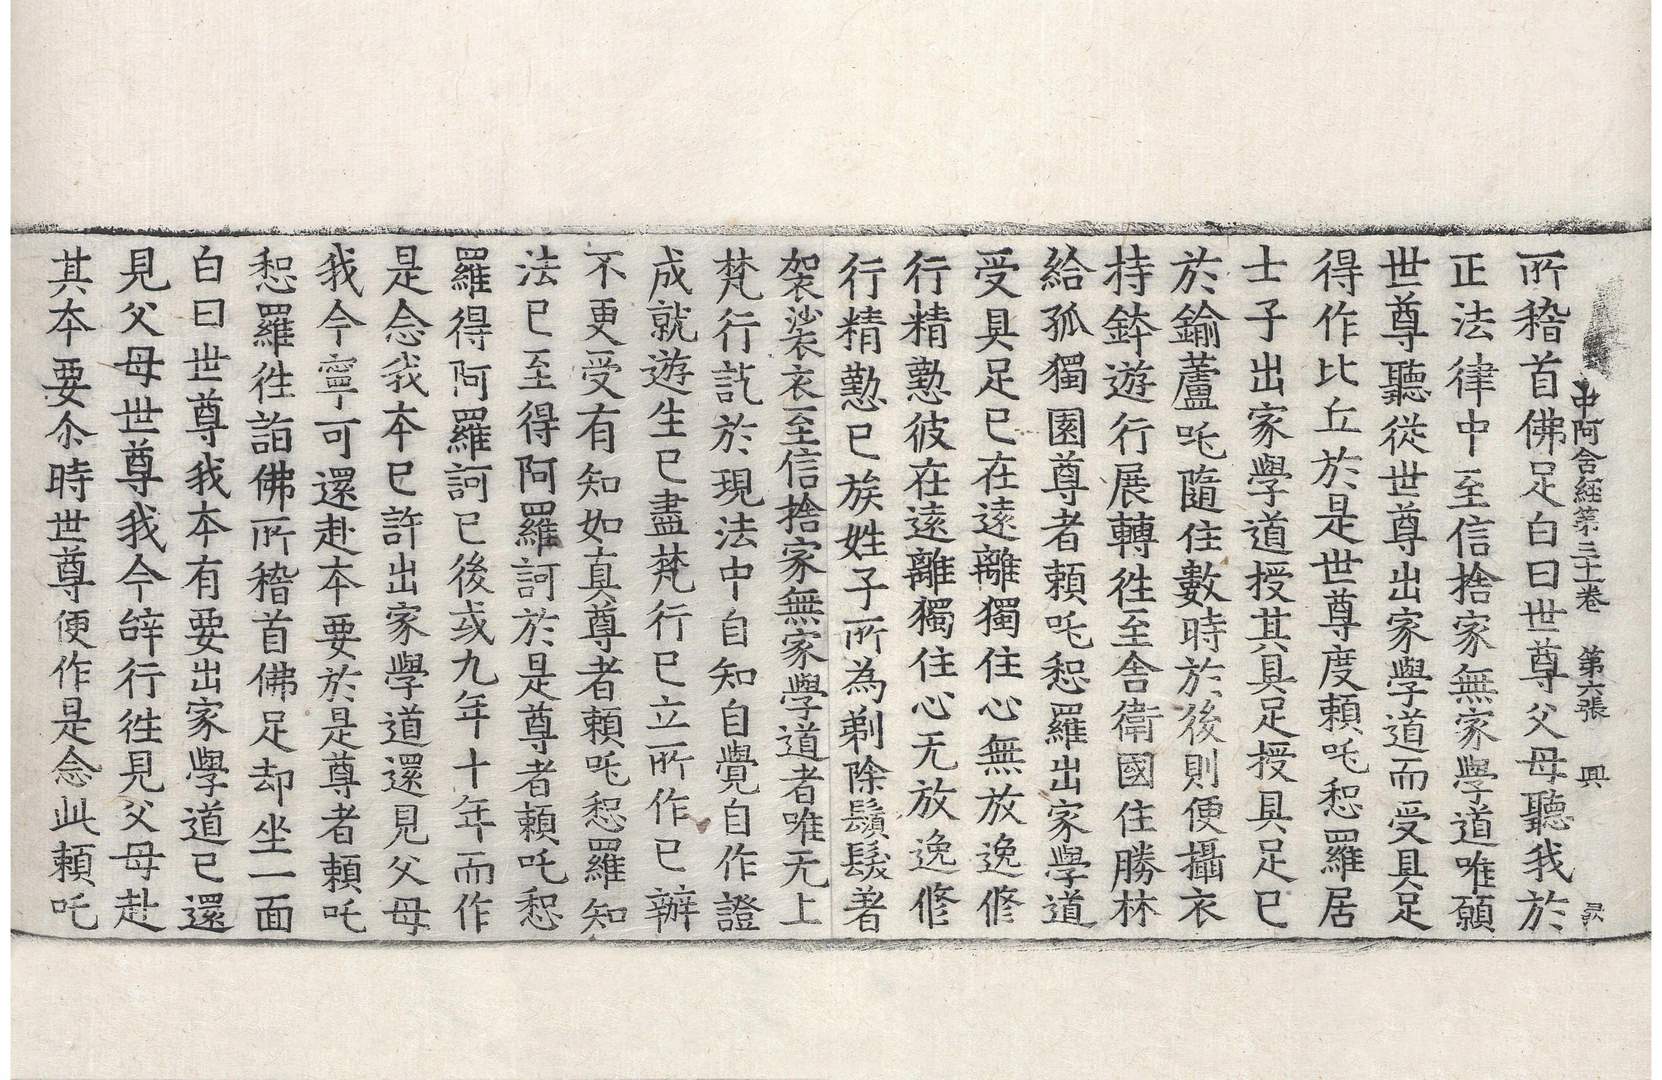 中阿含經第三十一卷 第六張 興
所稽首佛足白曰世尊父母聽我於
正法律中至信捨家無家學道唯願
世尊聽從世尊出家學道而受具足
得作比丘於是世尊度頼吒惒羅居
士子出家學道授其具足授具足已
於鍮蘆吒隨住數時於後則便攝衣
持鉢遊行展轉徃至舍衛國住勝林
給孤獨園尊者頼吒惒羅出家學道
受具足已在遠離獨住心無放逸修
行精懃彼在遠離獨住心无放逸修
行精懃已族姓子所為剃除鬚髮著
袈裟衣至信捨家無家學道者唯无上
梵行訖於現法中自知自覺自作證
成就遊生已盡梵行已立所作已辦
不更受有知如真尊者頼吒惒羅知
法已至得阿羅訶於是尊者頼吒惒
羅得阿羅訶已後或九年十年而作
是念我本已許出家學道還見父母
我今寧可還赴本要於是尊者頼吒
惒羅徃詣佛所稽首佛足却坐一面
白曰世尊我本有要出家學道已還
見父母世尊我今辝行徃見父母赴
其本要尒時世尊便作是念此頼吒